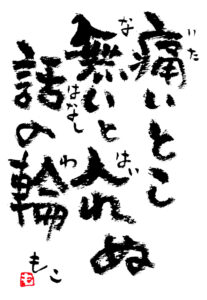 痛いとこ
無いと入れぬ
話の輪
もこ
いた
な
はい
はなし
わ
も